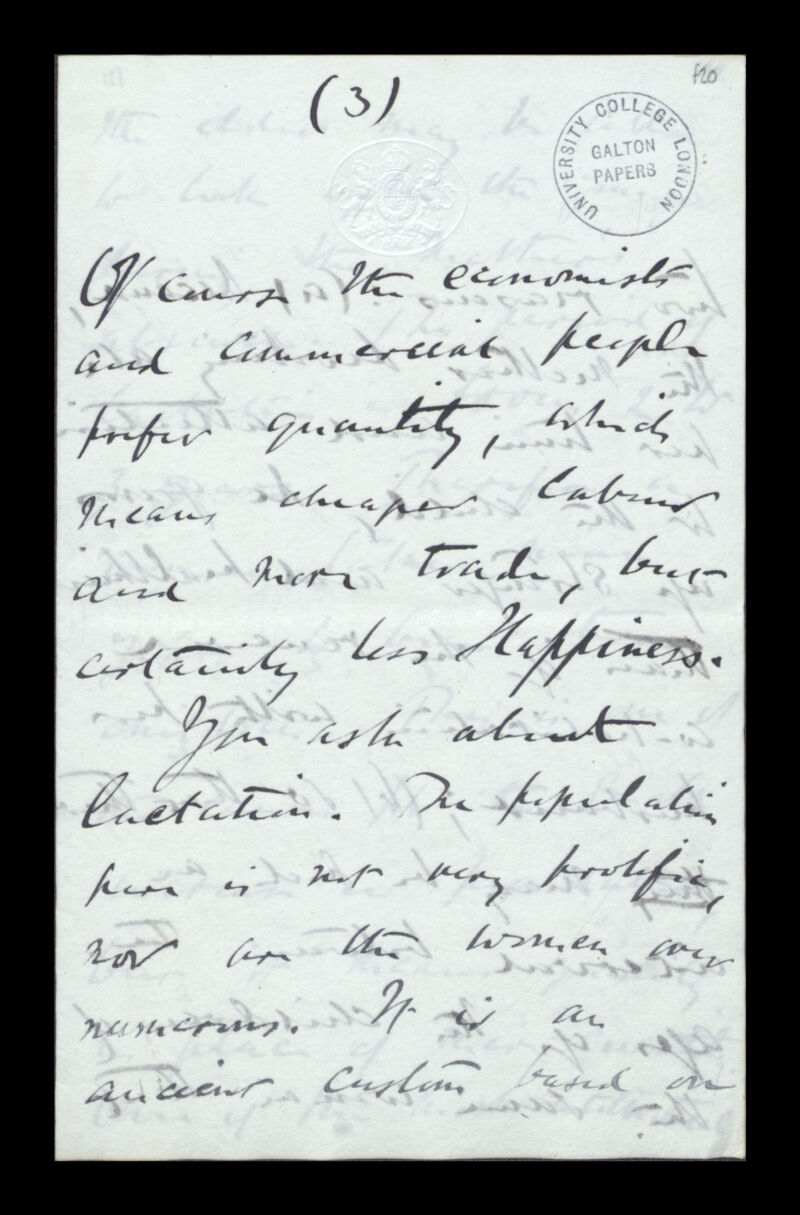 (3)
f20
UNIVERSITY COLLEGE LONDON
GALTON
PAPERS
Of course the economists
and commercial people
prefer quantity, which
means cheaper labour
and more trade, but
certainly less Happiness.
You ask about
lactation. The population
here is not very prolific,
nor are the women over
numerous. It is an
ancient custom based on